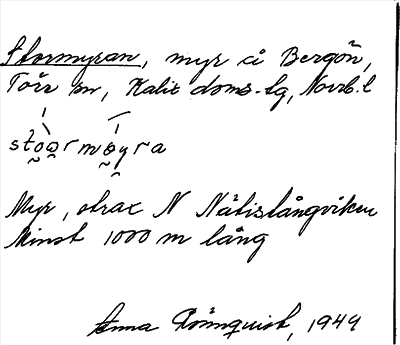 Stormyran, myr å Bergön,
Töre sn, Kalix doms.-lg, Norrb. l
stoərmøyra
Myr, strax N Nätislångviken
Minst 1000 m lång
Anna Rönnquist, 1949